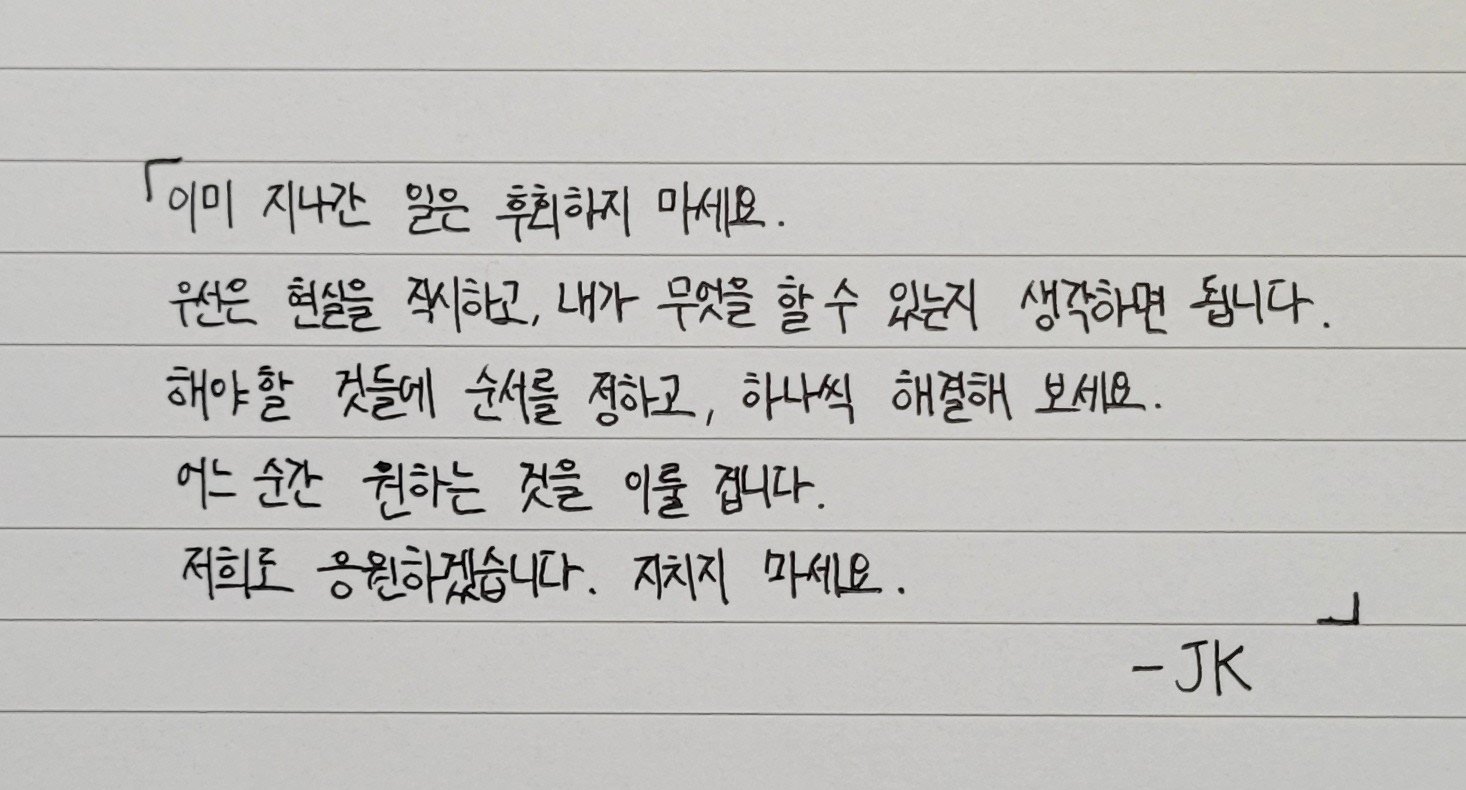 「이미 지나간 일은 후회하지 마세요.
우선은 현실을 직시하고, 내가 무엇을 할 수 있는지 생각하면 됩니다.
해야할 것들에 순서를 정하고, 하나씩 해결해 보세요.
어느 순간 원하는 것을 이룰 겁니다.
저희도 응원하겠습니다. 지치지 마세요.
」
-JK